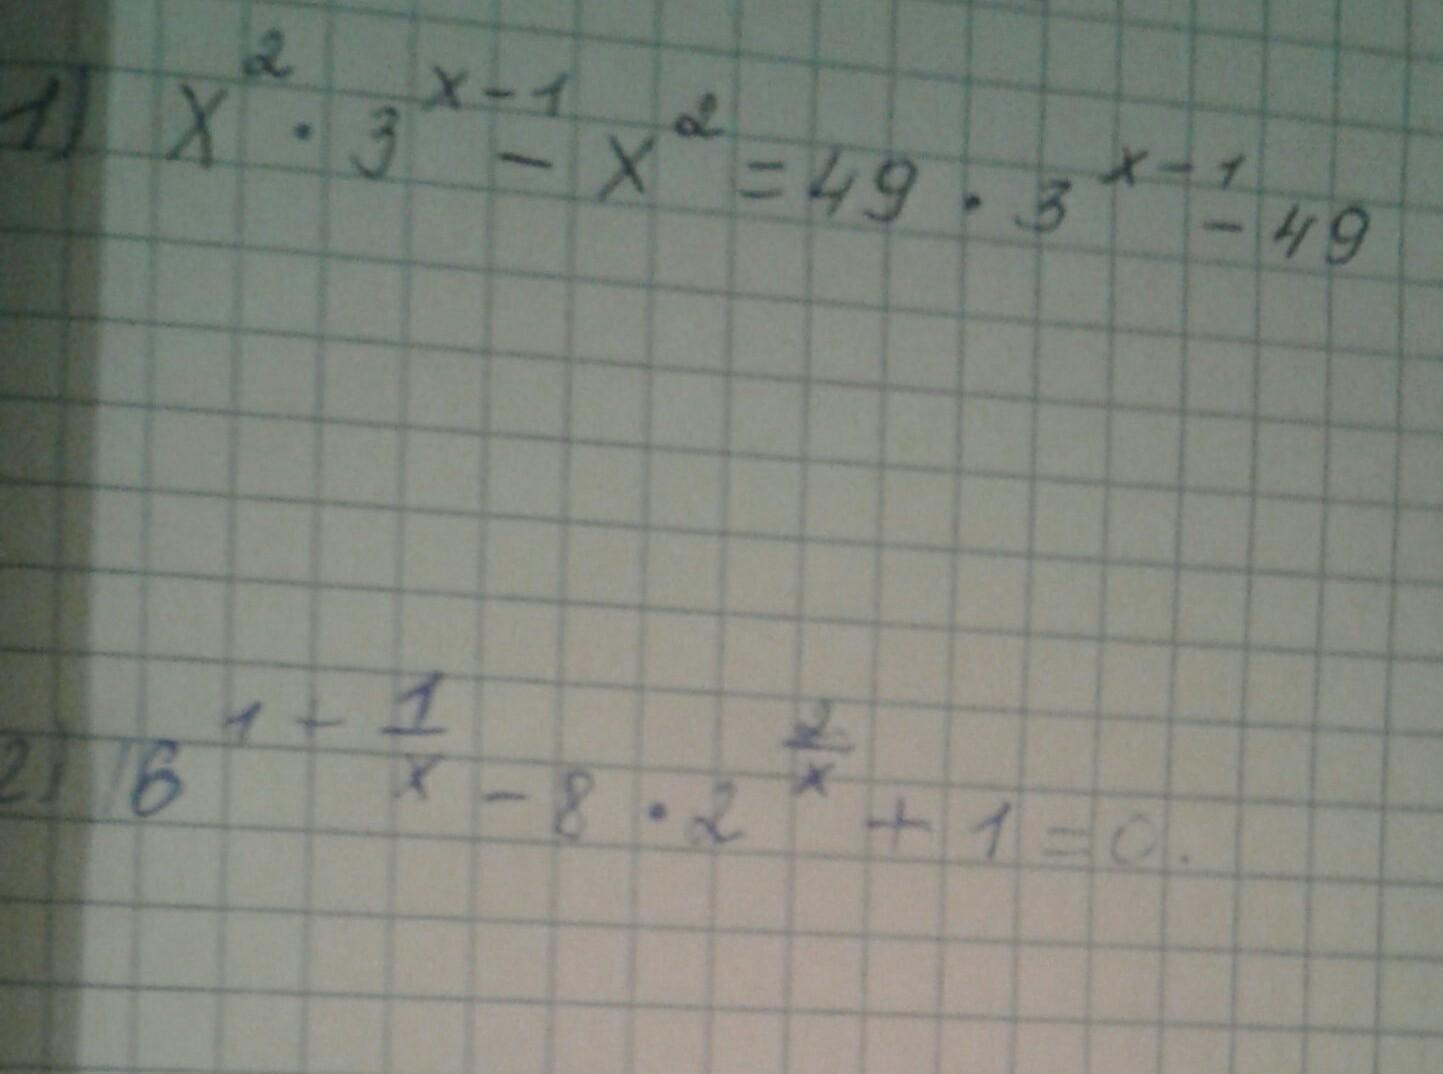 1) x² · 3^(x-1) - x² = 49 · 3^(x-1) - 49
2) 16^(1+1/x) - 8 · 2^(2/x) + 1 = 0.